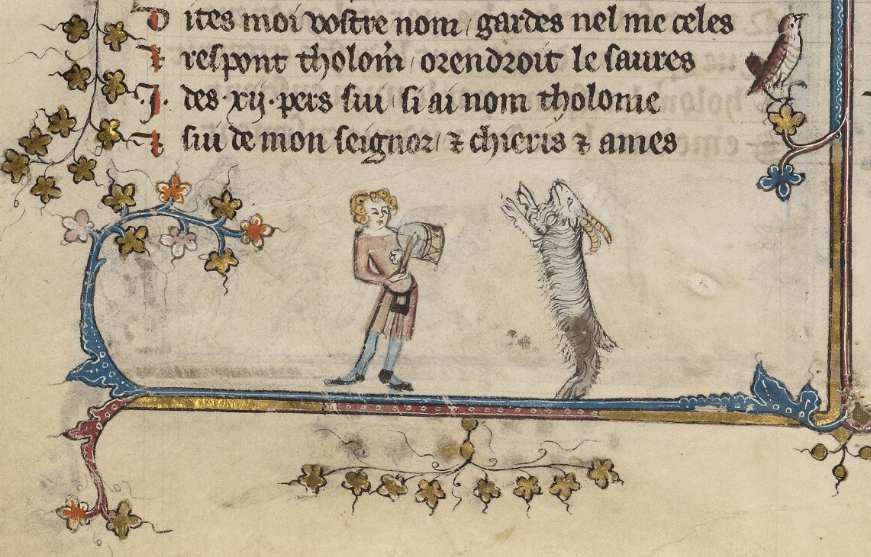 D ites moi vostre nom / gardes nel me celes
t respont tholom̄ / orendroit le saures
J. des .xij. pers sui / si ai nom tholome
t sui de mon seignor / ⁊ chieris ⁊ ames